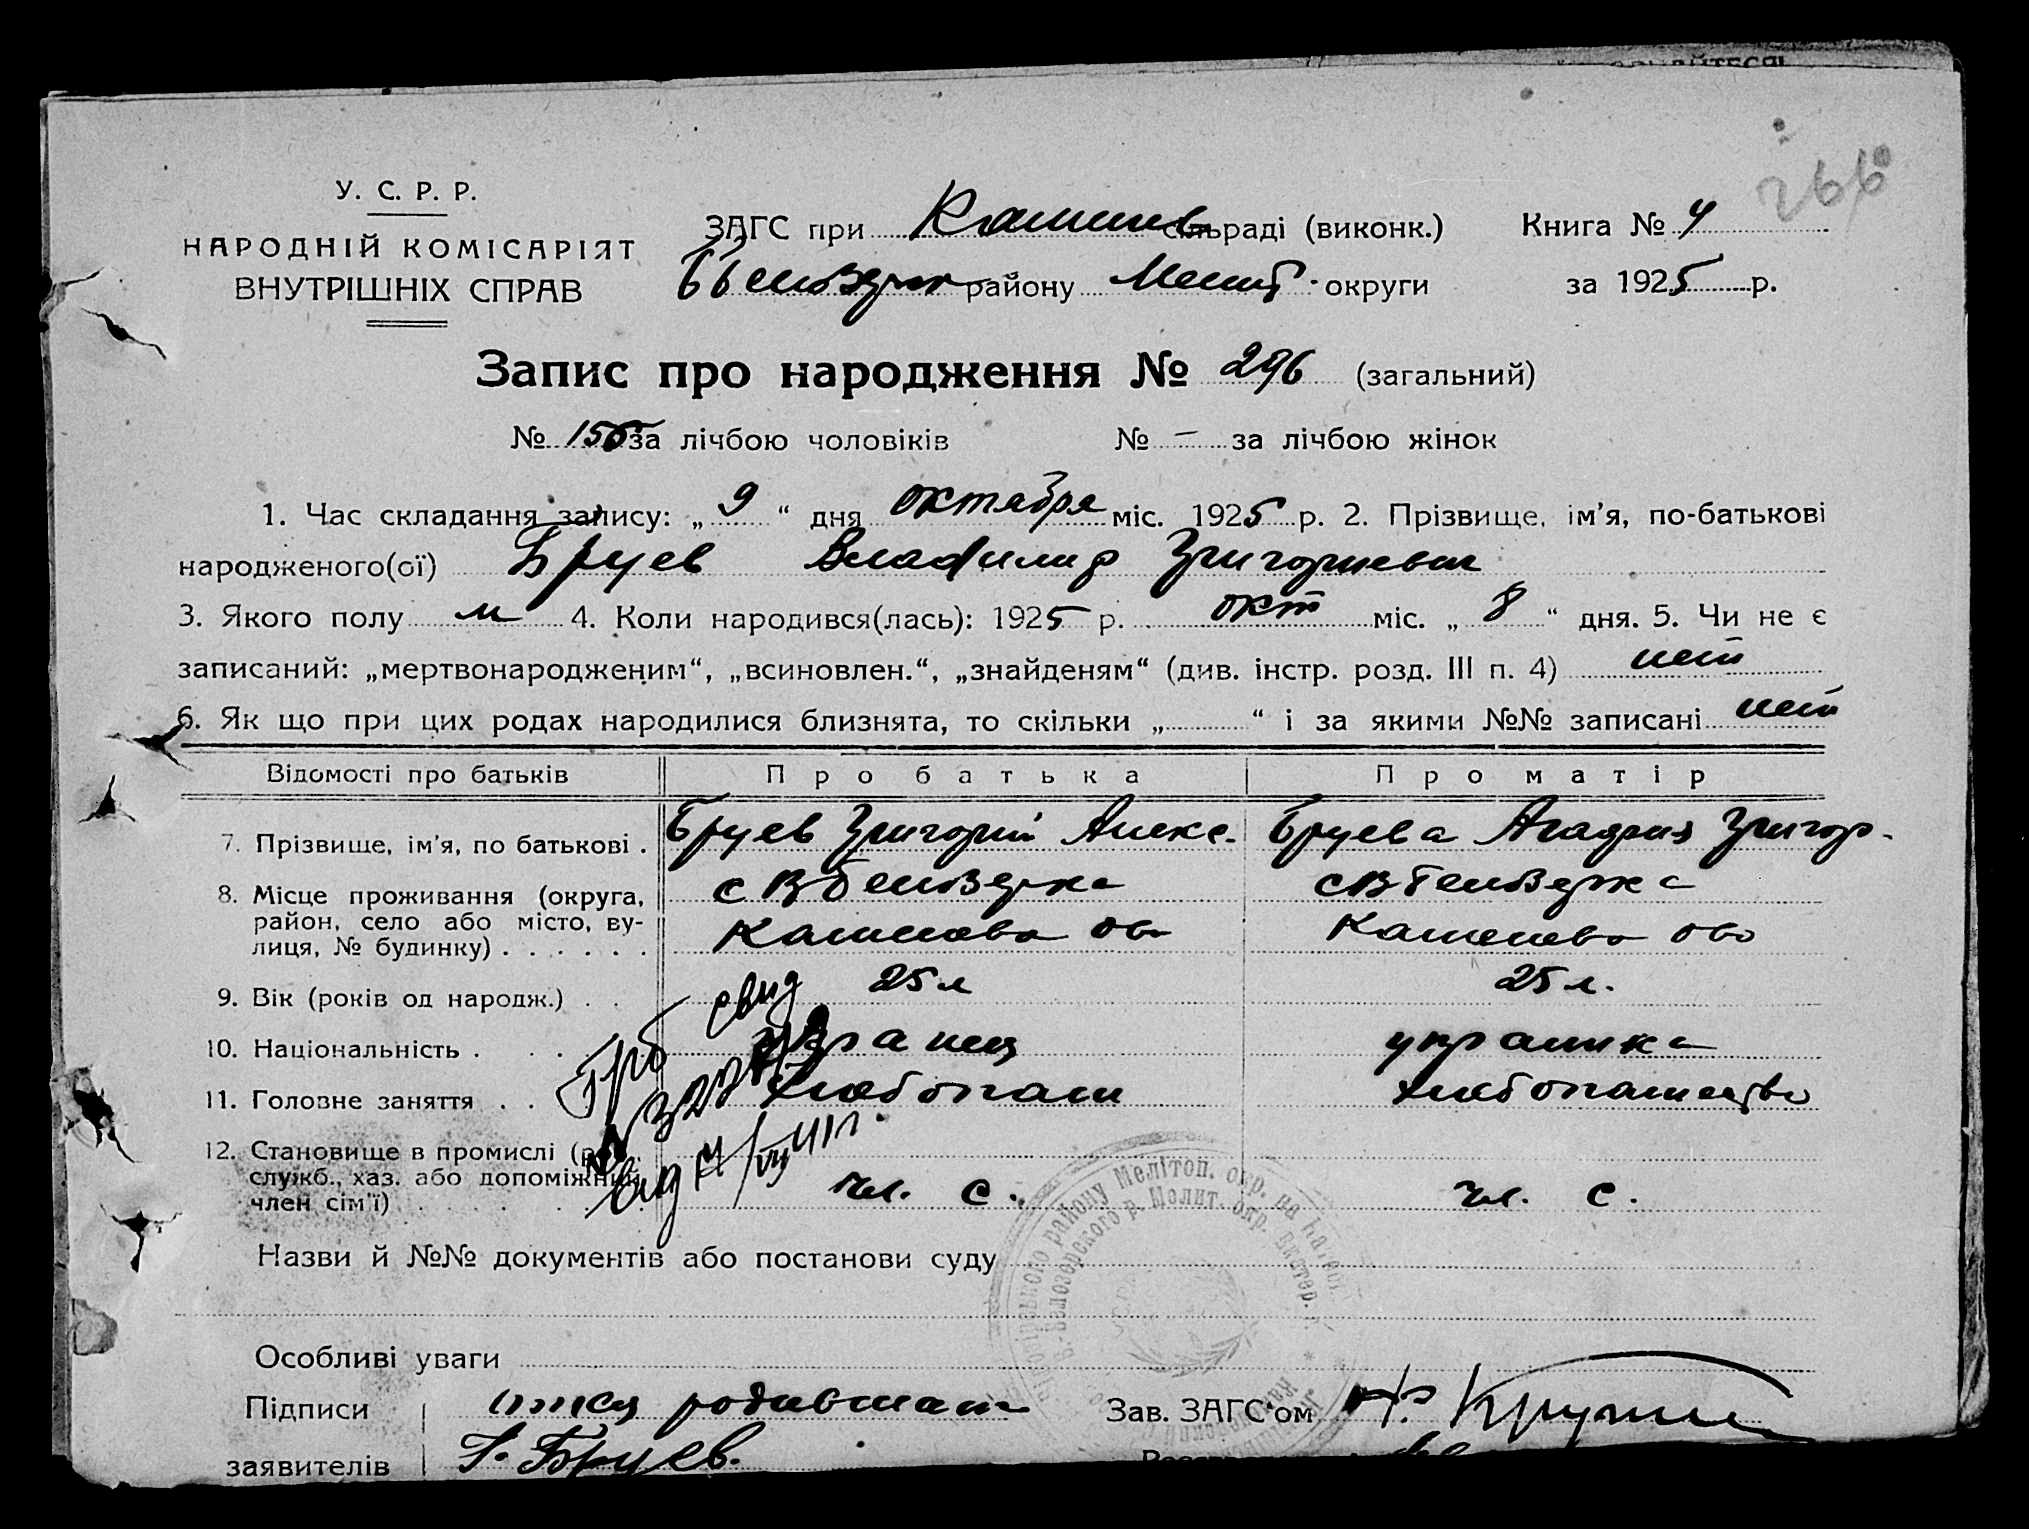 266
У. С. Р. Р.
НАРОДНІЙ КОМІСАРІЯТ
ВНУТРІШНІХ СПРАВ
ЗАГС при сільраді (виконк.) Книга № 4
району Мелит. округи за 1925 р.
Запис про народження № 296 (загальний)
№ 156 за лічбою чоловіків № – за лічбою жінок
1. Час складання запису: „ 9 “ дня октября міс. 1925 р. 2. Прізвище, ім’я, по-батькові
народженого(ої) Бруев Владимир Григориевич
3. Якого полу м 4. Коли народився(лась): 1925 р. окт міс. „ 8 “ дня. 5. Чи не є
записаний: „мертвонародженим“, „всиновлен.“, „знайденям“ (див. інстр. розд. III п. 4) нет
6. Як що при цих родах народилися близнята, то скільки „ “ і за якими №№ записані нет
Відомості про батьків Про батька Про матір
7. Прізвище, ім’я, по батькові . Бруев Григорий Алекс. Бруева Григор.
8. Місце проживання (округа, район, село або місто, вулиця, № будинку) . . . . . . с В Белозерка с В Белозерка
9. Вік (років од народж.) . . 25 л 25 л.
10. Національність . . . . украинец украинка
11. Головне заняття . . . хлебопаш хлебопашество
12. Становище в промислі (
служб., хаз. або допоміжний
член сім’ї) . . . . чл. с. чл. с.
Назви й №№ документів або постанови суду
Особливі уваги
Підписи отец Зав. ЗАГС’ом
заявителів Г. Бруев.